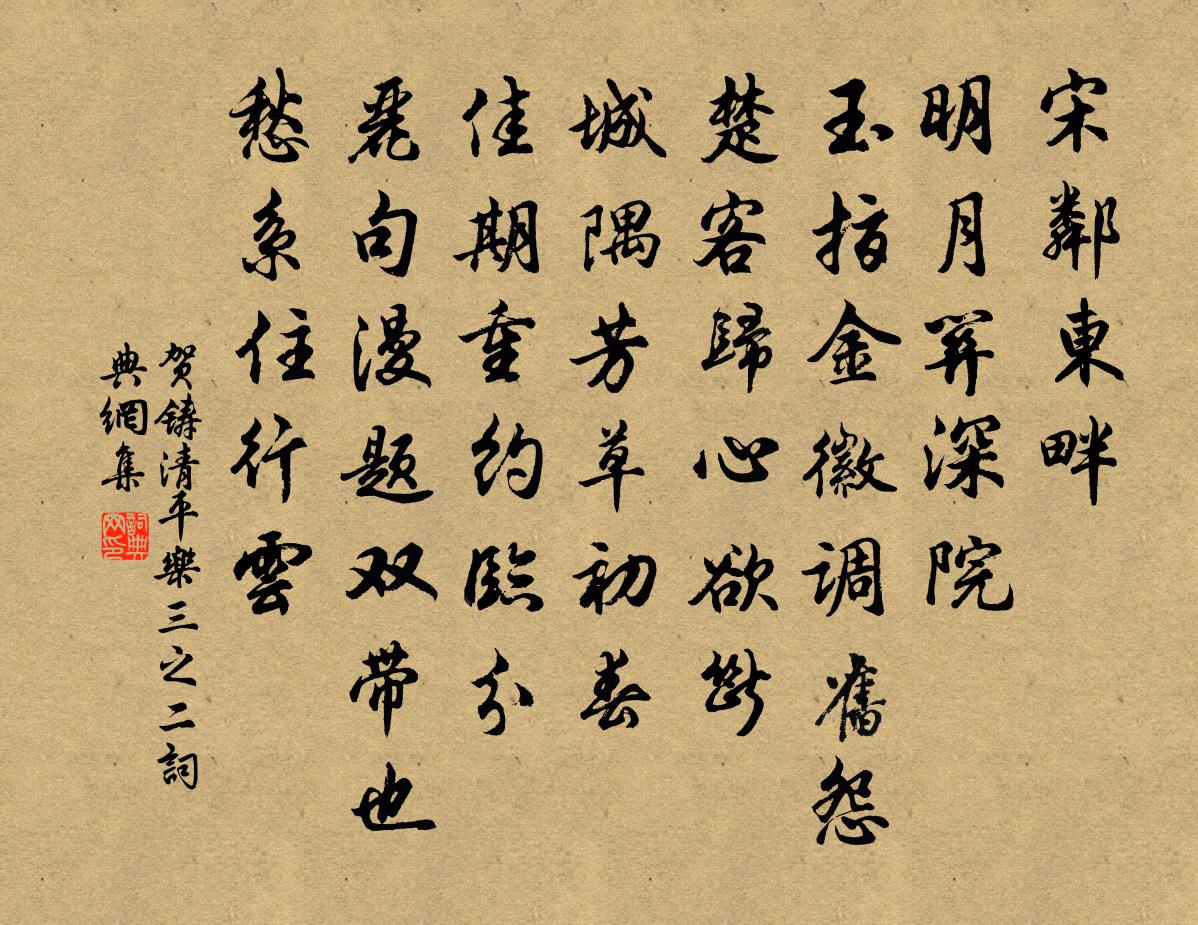 宋鄰東畔
明月关深院
玉指金徽调舊怨
楚客歸心欲斷
城隅芳草初春
佳期重约臨分
麗句漫题双带也
愁系住行雲
贺鑄清平樂三之二詞
典網集
詞典
网印